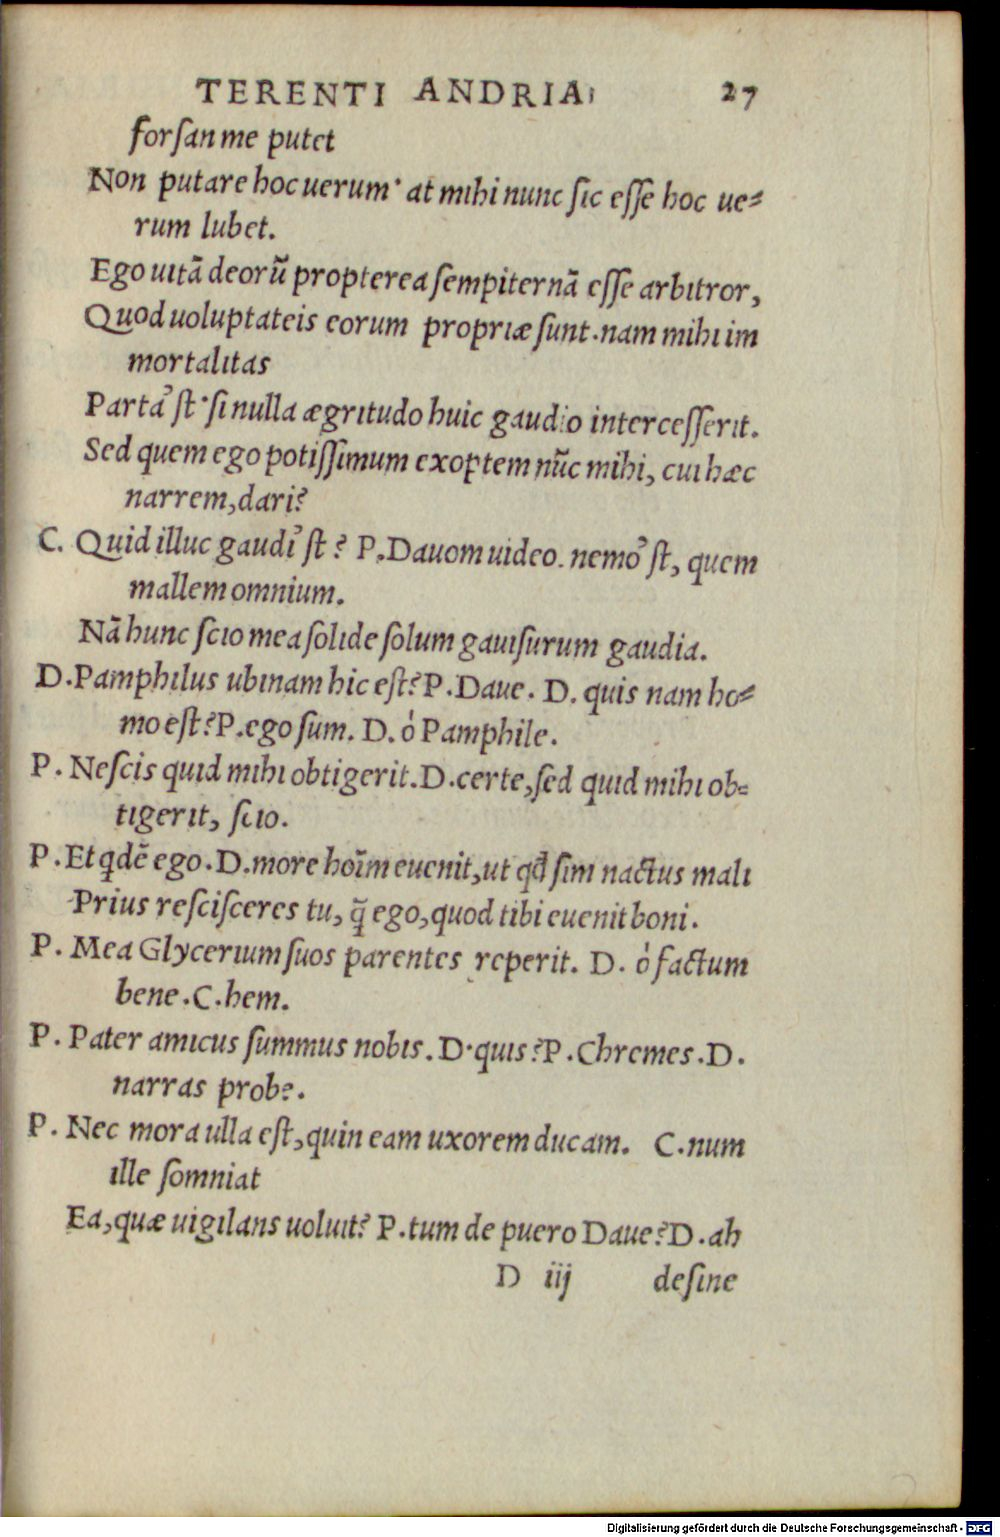 TERENTI ANDRIA. 27
forſan me putet
Non putare hoc uerum· at mihi nunc ſic eſſe hoc ue-
rum lubet.
Ego uitã deorũ propterea ſempiternã eſſe arbitror,
Quod uoluptateis eorum propriæ ſunt.nam mihi im
mortalitas
Parta' ſt·ſi nulla ægritudo huic gaudio interceſſerit.
Sed quem ego potiſſimum exoptem nũc mihi, cui hæc
narrem,dari?
C. Quid illuc gaudi' ſt? P.Dauom uideo. nemo' ſt, quem
mallem omnium.
Nã hunc ſcio mea ſolide ſolum gauiſurum gaudia.
D.Pamphilus ubinam hic eſt?P.Daue. D. quis nam ho-
mo eſt?P.ego ſum. D. ó Pamphile.
P. Neſcis quid mihi obtigerit.D.certe,ſed quid mihi ob-
tigerit, ſcio.
P.Et qdẽ ego.D.more hoĩm euenit,ut qđ ſim nactus mali
Prius reſciſceres tu, q̃ ego,quod tibi euenit boni.
P. Mea Glycerium ſuos parentes reperit. D. ó factum
bene.C.hem.
P. Pater amicus ſummus nobis.D·quis?P.Chremes.D.
narras probe.
P. Nec mora ulla eſt,quin eam uxorem ducam. C.num
ille ſomniat
Ea,quæ uigilans uoluit? P.tum de puero Daue?D.ah
D iij deſine
Digitalisierung gefördert durch die Deutsche Forschungsgemeinschaft - DFG